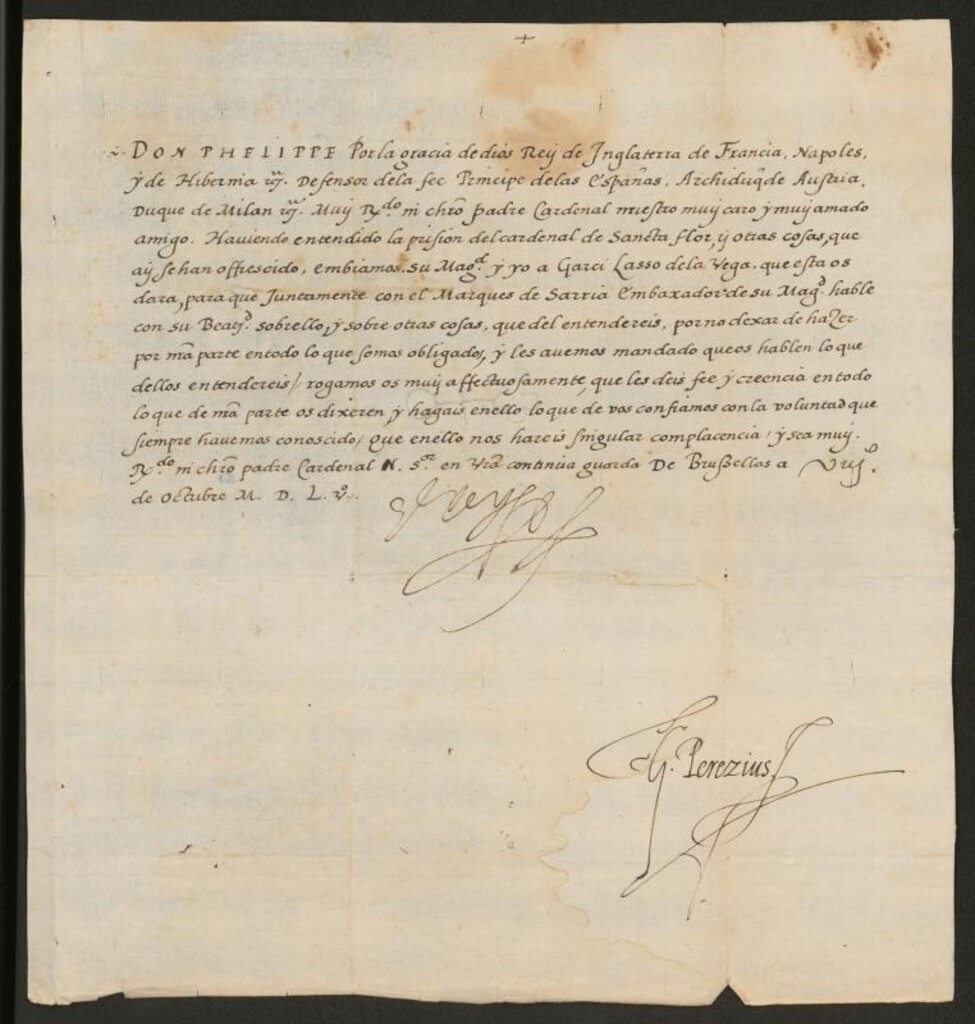 +
DON PHELIPPE Por la gracia de dios Rey de Inglaterra de Francia, Napoles,
y de Hibernia &c. Defensor dela fee Principe delas Españas, Archiduq̃ de Austria,
Duque de Milan &c. Muy R.do in chr̃o padre Cardenal nuestro muy caro y muy amado
amigo. Haviendo entendido la prision del cardenal de Sancta flor, y otras cosas, que
ay se han offrescido, embiamos su Mag.d y yo a Garci Lasso dela Vega, que esta os
dara, para que Juntamente con el Marques de Sarria Embaxador de su Mag.d hable
con su Beat.d sobrello, y sobre otras cosas, que del entendereis, por no dexar de hazer
por mr̃a parte en todo lo que somos obligados, y les avemos mandado que os hablen lo que
dellos entendereis/ rogamos os muy affectuosamente, que les deis fee y creencia en todo
lo que de mr̃a parte os dixeren, y hagais enello lo que de vos confiamos con la voluntad que
siempre havemos conoscido/ que enello nos hareis singular complacencia/ y sea muy.
R.do in chr̃o padre Cardenal N. S.or en vr̃a continua guarda De Brussellas a
de Octubre M. D. L. v.
G. Perezius